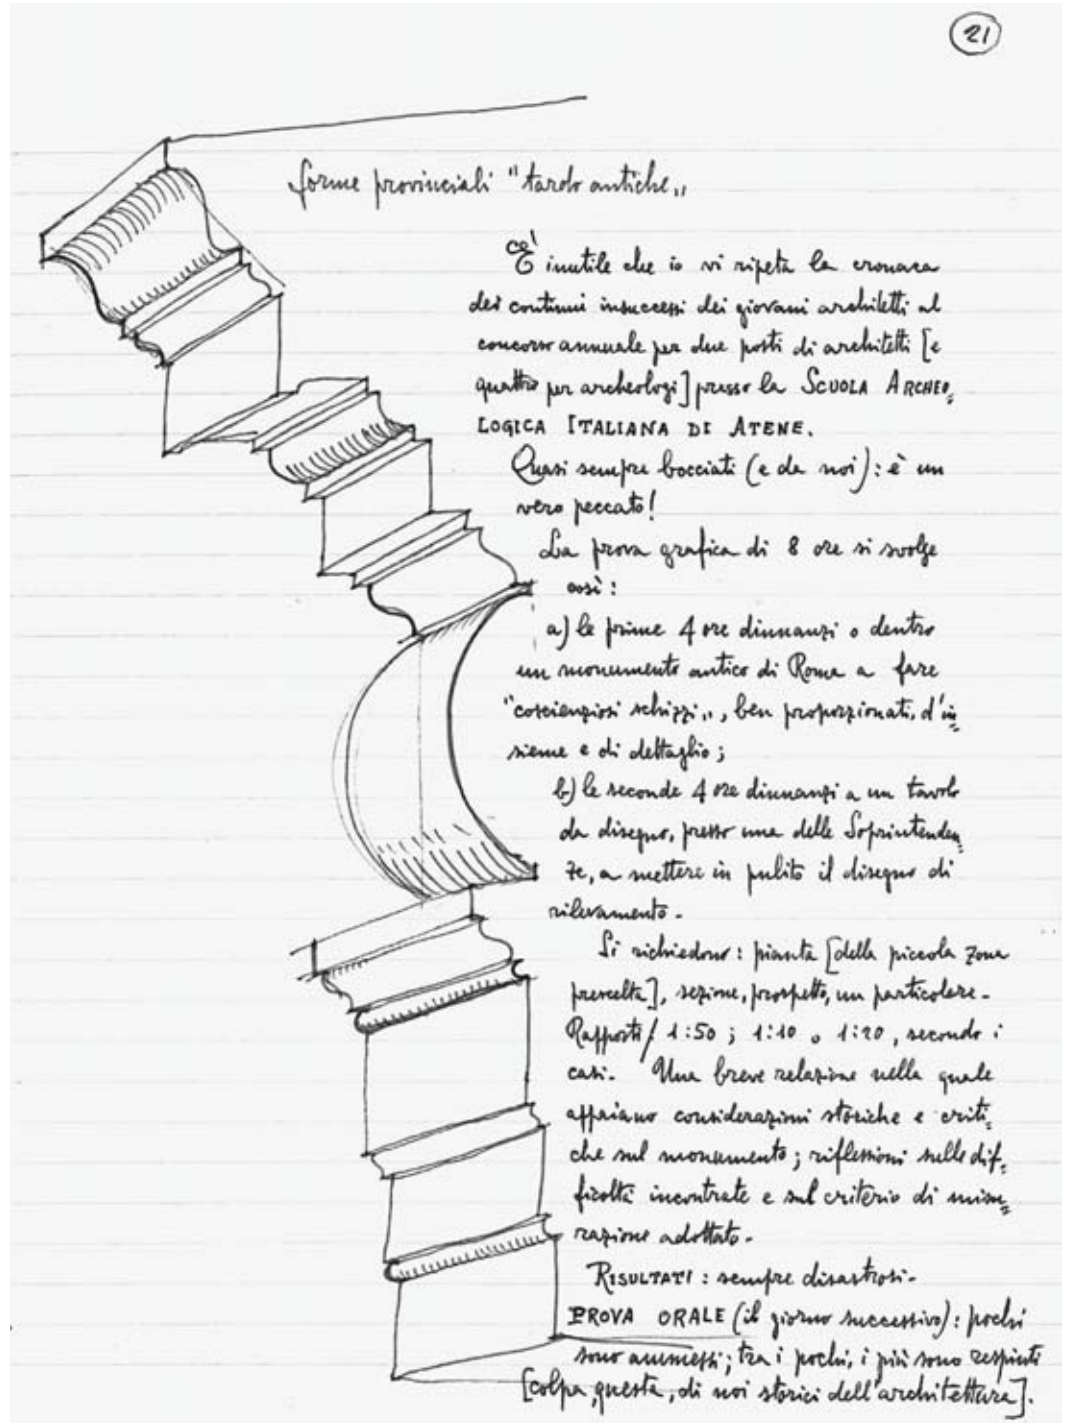 21
forme provinciali "tardo antiche„
È inutile che io vi ripeta la cronaca
dei continui insuccessi dei giovani architetti al
concorso annuale per due posti di architetti [e
quattro per archeologi] presso la SCUOLA ARCHEO=
LOGICA ITALIANA DI ATENE.
Quasi sempre bocciati (e da noi): è un
vero peccato!
La prova grafica di 8 ore si svolge
così:
a) le prime 4 ore dinnanzi o dentro
un monumento antico di Roma a fare
"coscienziosi schizzi„, ben proporzionati, d'in=
sieme e di dettaglio;
b) le seconde 4 ore dinnanzi a un tavolo
da disegno, presso una delle Soprintenden=
ze, a mettere in pulito il disegno di
rilevamento.
Si richiedono: pianta [della piccola zona
prescelta], sezione, prospetto, un particolare.
Rapporti/ 1:50; 1:10 o 1:20, secondo i
casi. Una breve relazione nella quale
appaiano considerazioni storiche e criti=
che sul monumento; riflessioni sulle dif=
ficoltà incontrate e sul criterio di misu=
razione adottato.
RISULTATI: sempre disastrosi.
PROVA ORALE (il giorno successivo): pochi
sono ammessi; tra i pochi, i più sono respinti
[colpa, questa, di noi storici dell'architettura].